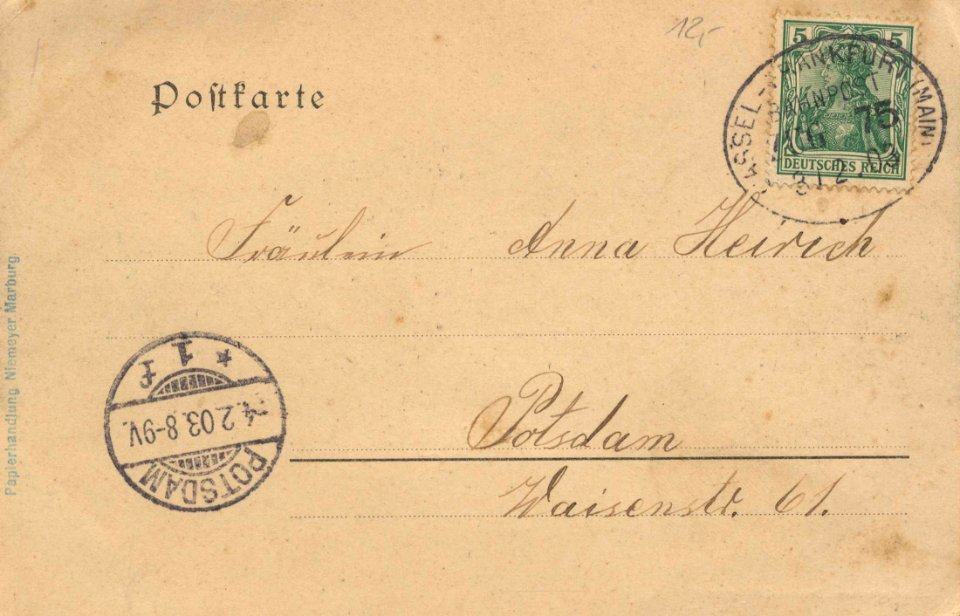 12,-
5 5
DEUTSCHES REICH
CASSEL-FRANKFURT (MAIN)
BAHNPOST
ZUG 75
3 12 03
Postkarte
Fräulein Anna Heirich
Potsdam
Waisenstr. 61.
* 1 f
4.2.03.8-9V.
POTSDAM
Papierhandlung Niemeyer Marburg.